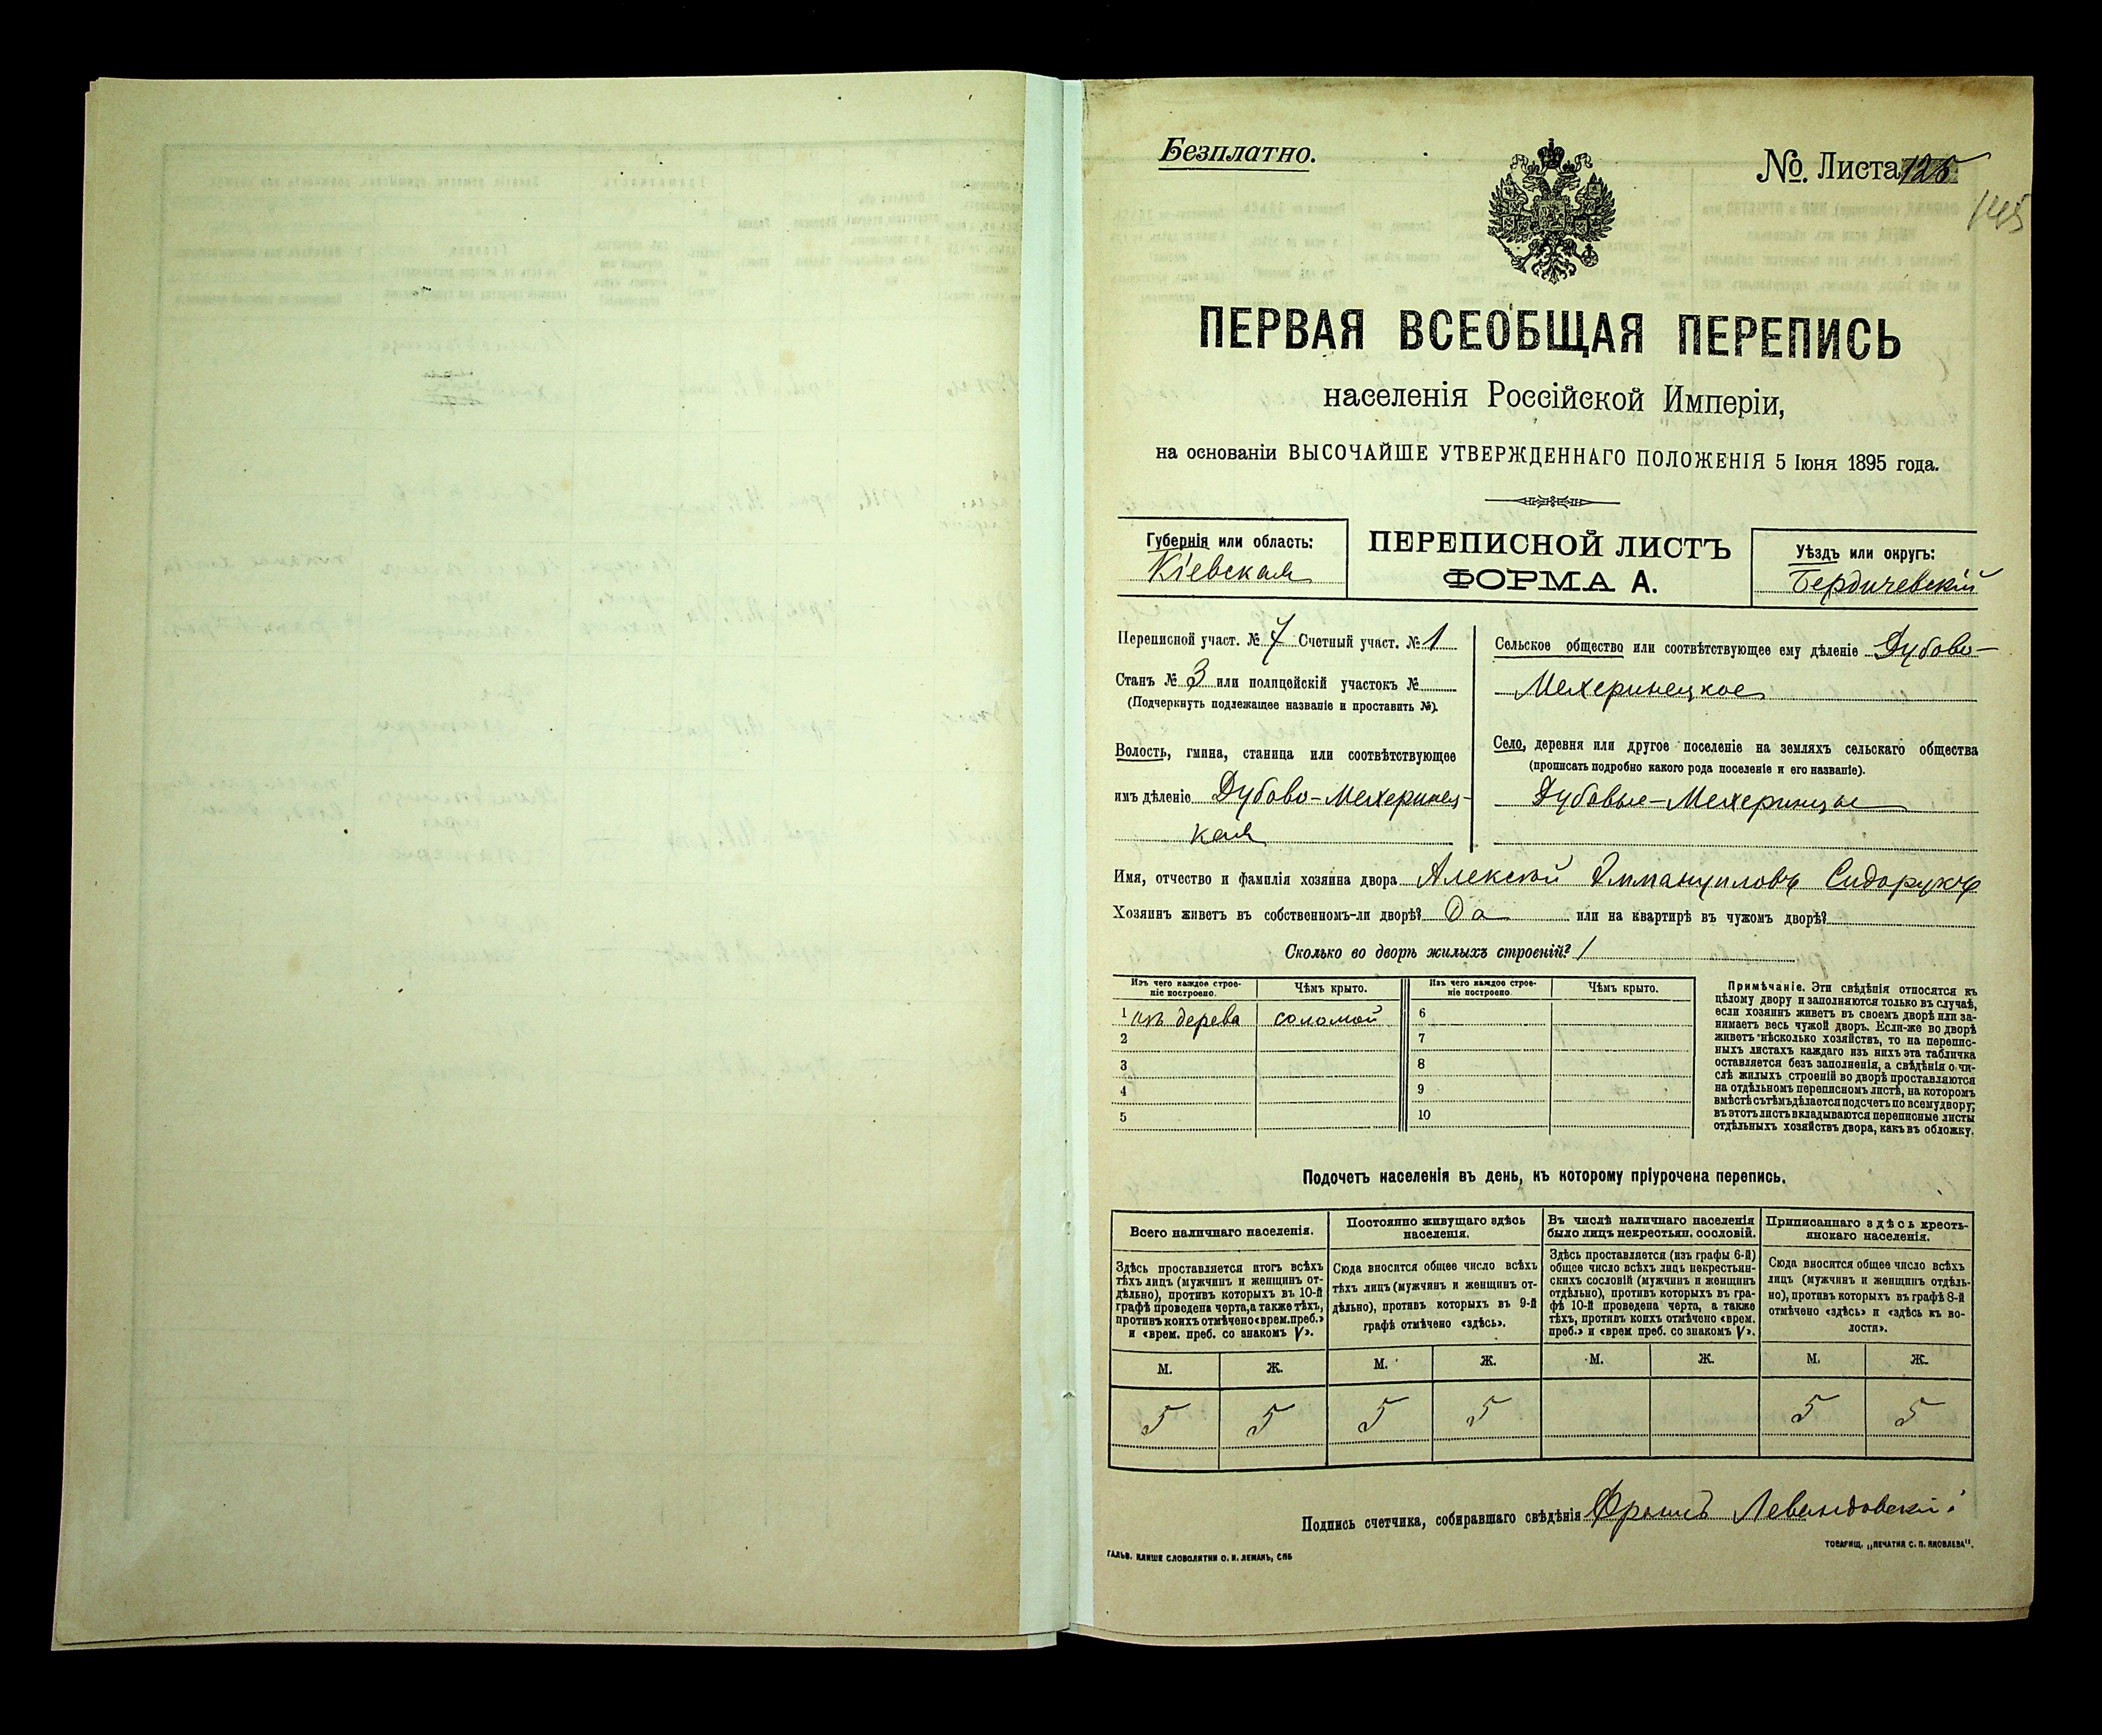 Безплатно.
№. Листа 125
145
ПЕРВАЯ ВСЕОБЩАЯ ПЕРЕПИСЬ
населенія Россійской Имперіи,
на основаніи ВЫСОЧАЙШЕ УТВЕРЖДЕННАГО ПОЛОЖЕНІЯ 5 Іюня 1895 года.
Губернія или область:
Кіевская
ПЕРЕПИСНОЙ ЛИСТЪ
ФОРМА А.
Уѣздъ или округъ:
Бердичевскій
Переписной участ. № 7 Счетный участ. № 1
Станъ № 3 или полицейскій участокъ №
(Подчеркнуть подлежащее названіе и проставить №).
Волость, гмина, станица или соотвѣтствующее
имъ дѣленіе Дубово-Мехеринец-
кая
Сельское общество или соотвѣтствующее ему дѣленіе Дубово-
Мехеринецкое
Село, деревня или другое поселеніе на земляхъ сельскаго общества
(прописать подробно какого рода поселеніе и его названіе).
Дубовые-Мехеринцы
Имя, отчество и фамилія хозяина двора Алексѣй Эммануиловъ Сидорукъ
Хозяинъ живетъ въ собственномъ-ли дворѣ? Да или на квартирѣ въ чужомъ дворѣ?
Сколько во дворѣ жилыхъ строеній? 1
Изъ чего каждое строе-
ніе построено.
Чѣмъ крыто.
Изъ чего каждое строе-
ніе построено.
Чѣмъ крыто.
1 изъ дерева соломой 6
2 7
3 8
4 9
5 10
Примѣчаніе. Эти свѣдѣнія относятся къ
цѣлому двору и заполняются только въ случаѣ,
если хозяинъ живетъ въ своемъ дворѣ или за-
нимаетъ весь чужой дворъ. Если-же во дворѣ
живетъ нѣсколько хозяйствъ, то на перепис-
ныхъ листахъ каждаго изъ нихъ эта табличка
оставляется безъ заполненія, а свѣдѣнія о чи-
слѣ жилыхъ строеній во дворѣ проставляются
на отдѣльномъ переписномъ листѣ, на которомъ
вмѣстѣ съ тѣмъ дѣлается подсчетъ по всему двору;
въ этотъ листъ вкладываются переписные листы
отдѣльныхъ хозяйствъ двора, какъ въ обложку.
Подочетъ населенія въ день, къ которому пріурочена перепись.
Всего наличнаго населенія.
Здѣсь проставляется итогъ всѣхъ
тѣхъ лицъ (мужчинъ и женщинъ от-
дѣльно), противъ которыхъ въ 10-й
графѣ проведена черта, а также тѣхъ,
противъ коихъ отмѣчено «врем. преб.»
и «врем. преб. со знакомъ V».
Постоянно живущаго здѣсь
населенія.
Сюда вносится общее число всѣхъ
тѣхъ лицъ (мужчинъ и женщинъ от-
дѣльно), противъ которыхъ въ 9-й
графѣ отмѣчено «здѣсь».
Въ числѣ наличнаго населенія
было лицъ некрестьян. сословій.
Здѣсь проставляется (изъ графы 6-й)
общее число всѣхъ лицъ некрестьян-
скихъ сословій (мужчинъ и женщинъ
отдѣльно), противъ которыхъ въ гра-
фѣ 10-й проведена черта, а также
тѣхъ, противъ коихъ отмѣчено «врем.
преб.» и «врем преб. со знакомъ V».
Приписаннаго здѣсь кресть-
янскаго населенія.
Сюда вносится общее число всѣхъ
лицъ (мужчинъ и женщинъ отдѣль-
но), противъ которыхъ въ графѣ 8-й
отмѣчено «здѣсь» и «здѣсь къ во-
лости».
М. Ж. М. Ж. М. Ж. М. Ж.
5 5 5 5 5 5
Подпись счетчика, собиравшаго свѣдѣнія Левандовскій
ГАЛЬВ. КЛИШЕ СЛОВОЛИТНИ О. И. ЛЕМАНЪ, СПБ
ТОВАРИЩ. „ПЕЧАТНЯ С. П. ЯКОВЛЕВА".